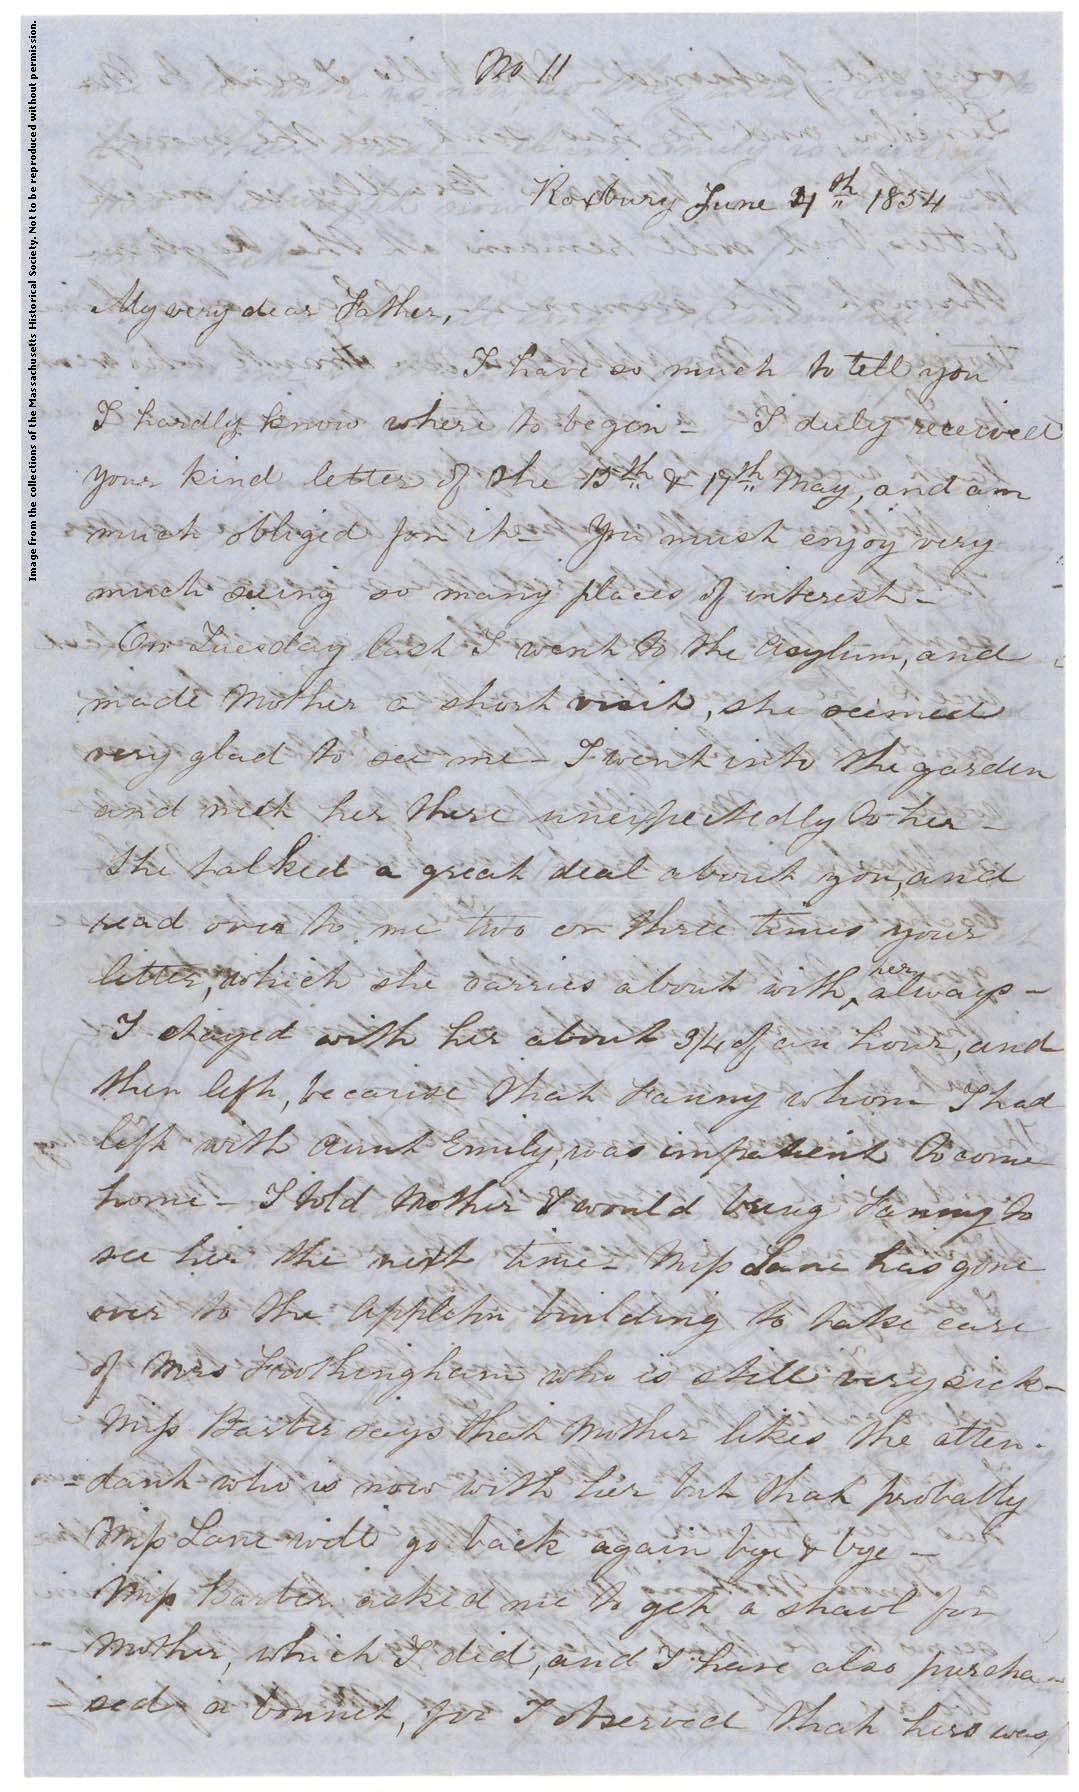 Image from the collections of the Massachusetts Historical Society. Not to be reproduced without permission.
No 11
Roxbury June 4th 1854
My very dear Father,
I have so much to tell you
I hardly know where to begin - I duly received
your kind letter of the 15th & 17th May, and am
much obliged for it - You must enjoy very
much seeing so many places of interest -
On Tuesday last I went to the Asylum, and
made Mother a short visit, she seemed
very glad to see me - I went into the garden
and met her there unexpectedly to her -
She talked a great deal about you, and
read over to me two or three times your
letter, which she carries about with her always -
I stayed with her about 3/4 of an hour, and
then left, because that Fanny whom I had
left with Aunt Emily, was impatient to come
home - I told Mother I would bring Fanny to
see her the next time - Miss Lane has gone
over to the Appleton building to take care
of Mrs Frothingham who is still very sick -
Miss Barber says that Mother likes the atten-
-dant who is now with her but that probably
Miss Lane will go back again bye & bye -
Miss Barber asked me to get a shawl for
Mother, which I did, and I have also purcha-
-sed a bonnet, for I observed that hers was